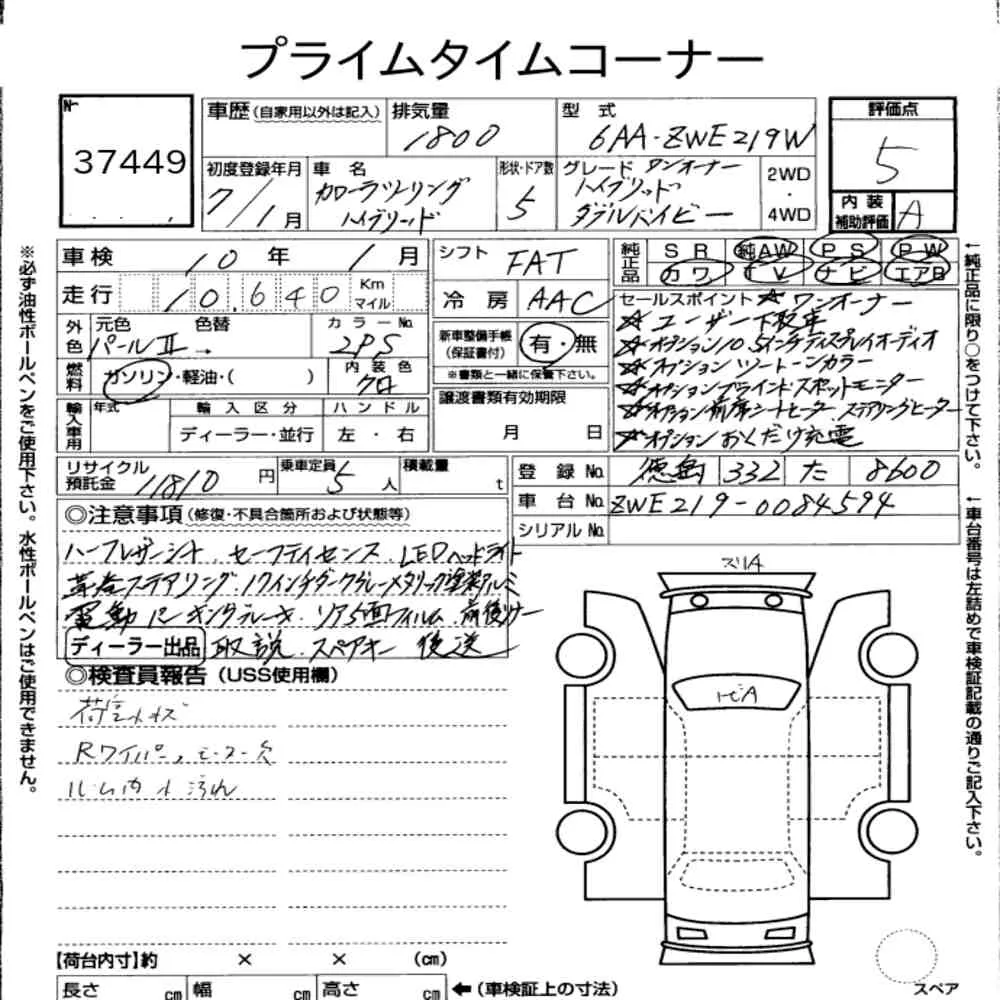 プライムタイムコーナー
№
37449
車歴(自家用以外は記入)
排気量
1800
型式
6AA-ZWE219W
評価点
5
初度登録年月
7/1月
車名
カローラツーリング
ハイブリード
形状・ドア数
5
グレード ワンオーナー
ハイブリッド
ダブルバイビー
2WD
・
4WD
内装
補助評価
A
車検 10年 1月
シフト
FAT
純正品
SR 純AW PS PW
カワ TV ナビ エアB
走行 10,640 Km
マイル
冷房
AAC
外色
元色 色替
パールⅡ→
カラーNo.
2PS
新車整備手帳
(保証書付)
有・無
※書類と一緒に保管下さい。
燃料
ガソリン・軽油・( )
内装色
クロ
輸入車用
年式
輸入区分
ディーラー・並行
ハンドル
左・右
譲渡書類有効期限
月 日
セールスポイント ☆ ワンオーナー
☆ ユーザー下取車
☆オプション10.5インチディスプレイオーディオ
☆オプション ツートーンカラー
☆オプションブラインドスポットモニター
☆オプション前席シートヒーター ステアリングヒーター
☆オプション おくだけ充電
リサイクル
預託金
11810円
乗車定員
5人
積載量
t
登録No.
徳島 332 た 8600
車台No.
ZWE219-0084594
シリアルNo.
◎注意事項(修復・不具合箇所および状態等)
ハーフレザーシート、セーフティセンス、LEDヘッドライト
革巻ステアリング、17インチダークグレーメタリック塗装アルミ
電動パーキングブレーキ、リア5面フィルム、前後ソナー
ディーラー出品 取説、スペアキー 後送
◎検査員報告(USS使用欄)
荷室小キズ
Rワイパー、モーター欠
ルーム内小汚れ
スリA
トビA
スペア
【荷台内寸】約 × × (cm)
長さ cm 幅 cm 高さ cm ←(車検証上の寸法)
※必ず油性ボールペンをご使用下さい。水性ボールペンはご使用できません。
←純正品に限り○をつけて下さい。
←車台番号は左詰めで車検証記載の通りご記入下さい。